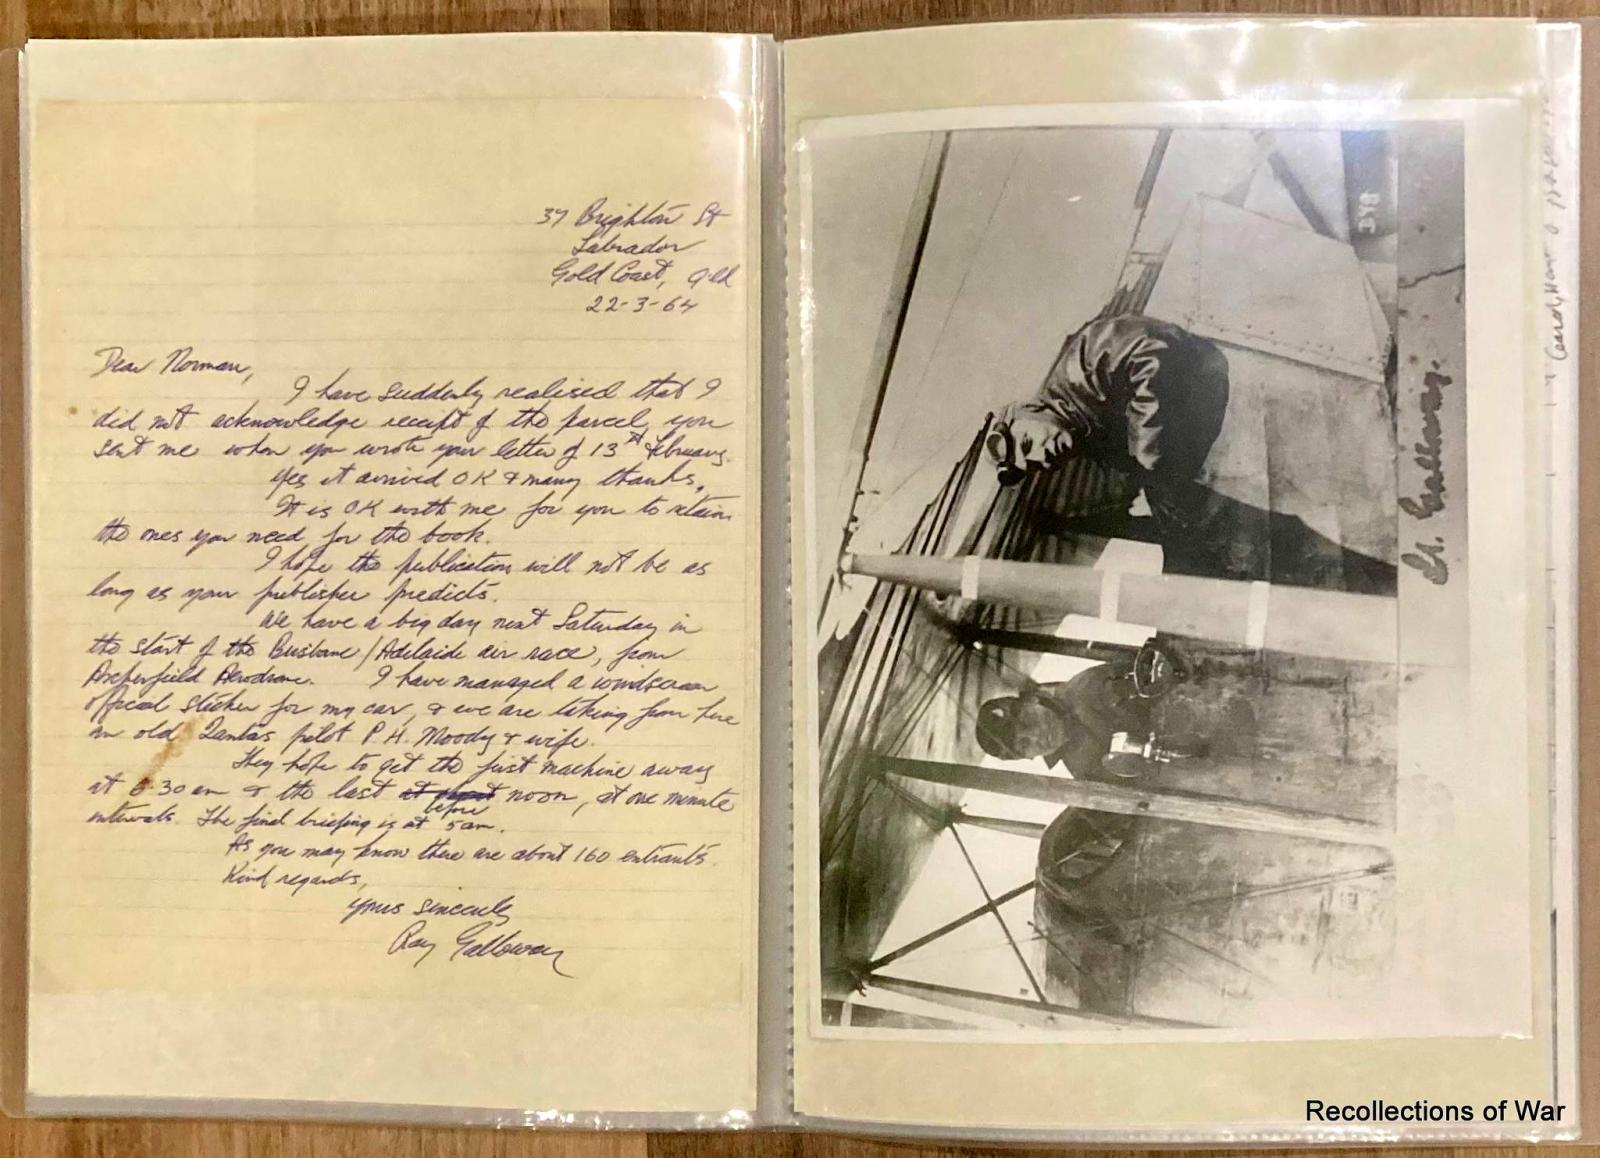 37 Brighton St
Labrador
Gold Coast, Qld
22-3-64
Dear Norman,
I have suddenly realised that I
did not acknowledge receipt of the parcel you
sent me when you wrote your letter of 13th February.
Yes it arrived OK & many thanks.
It is OK with me for you to retain
the ones you need for the book.
I hope the publication will not be as
long as your publisher predicts.
We have a big day next Saturday in
the start of the Brisbane/Adelaide air race, from
Archerfield Aerodrome. I have managed a windscreen
official sticker for my car, & we are taking from here
an old Qantas pilot P.H. Moody & wife.
They hope to get the first machine away
at 6.30 am & the last at noon, at one minute
before
intervals. The final briefing is at 5 am.
As you may know there are about 160 entrants.
Kind regards,
Yours sincerely
Ray Galloway
378
Lt. Galloway.
Recollections of War